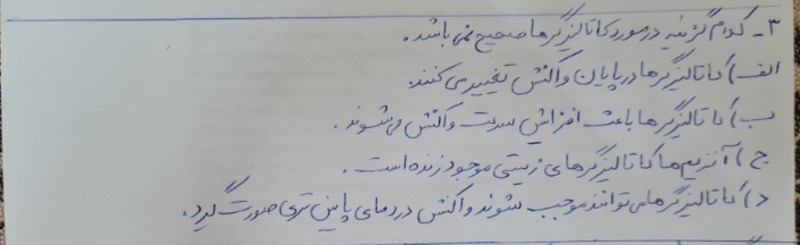 ۳- کدام گزینه در مورد کاتالیزگرها صحیح نمی باشد.
الف) کاتالیزگرها در پایان واکنش تغییر می کنند.
ب) کاتالیزگرها باعث افزایش سرعت واکنش می شوند.
ج) آنزیم ها کاتالیزگرهای زیستی موجود زنده است.
د) کاتالیزگرها می توانند موجب شوند واکنش در دمای پایین تری صورت گیرد.